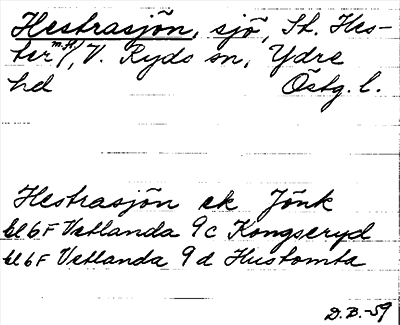 Hestrasjön, sjö, St. Hes-
ter m.fl., V. Ryds sn, Ydre
hd Östg. l.
Hestrasjön ek Jönk
bl 6F Vetlanda 9c Kongseryd
bl 6F Vetlanda 9d Hustomta
D.B.-59